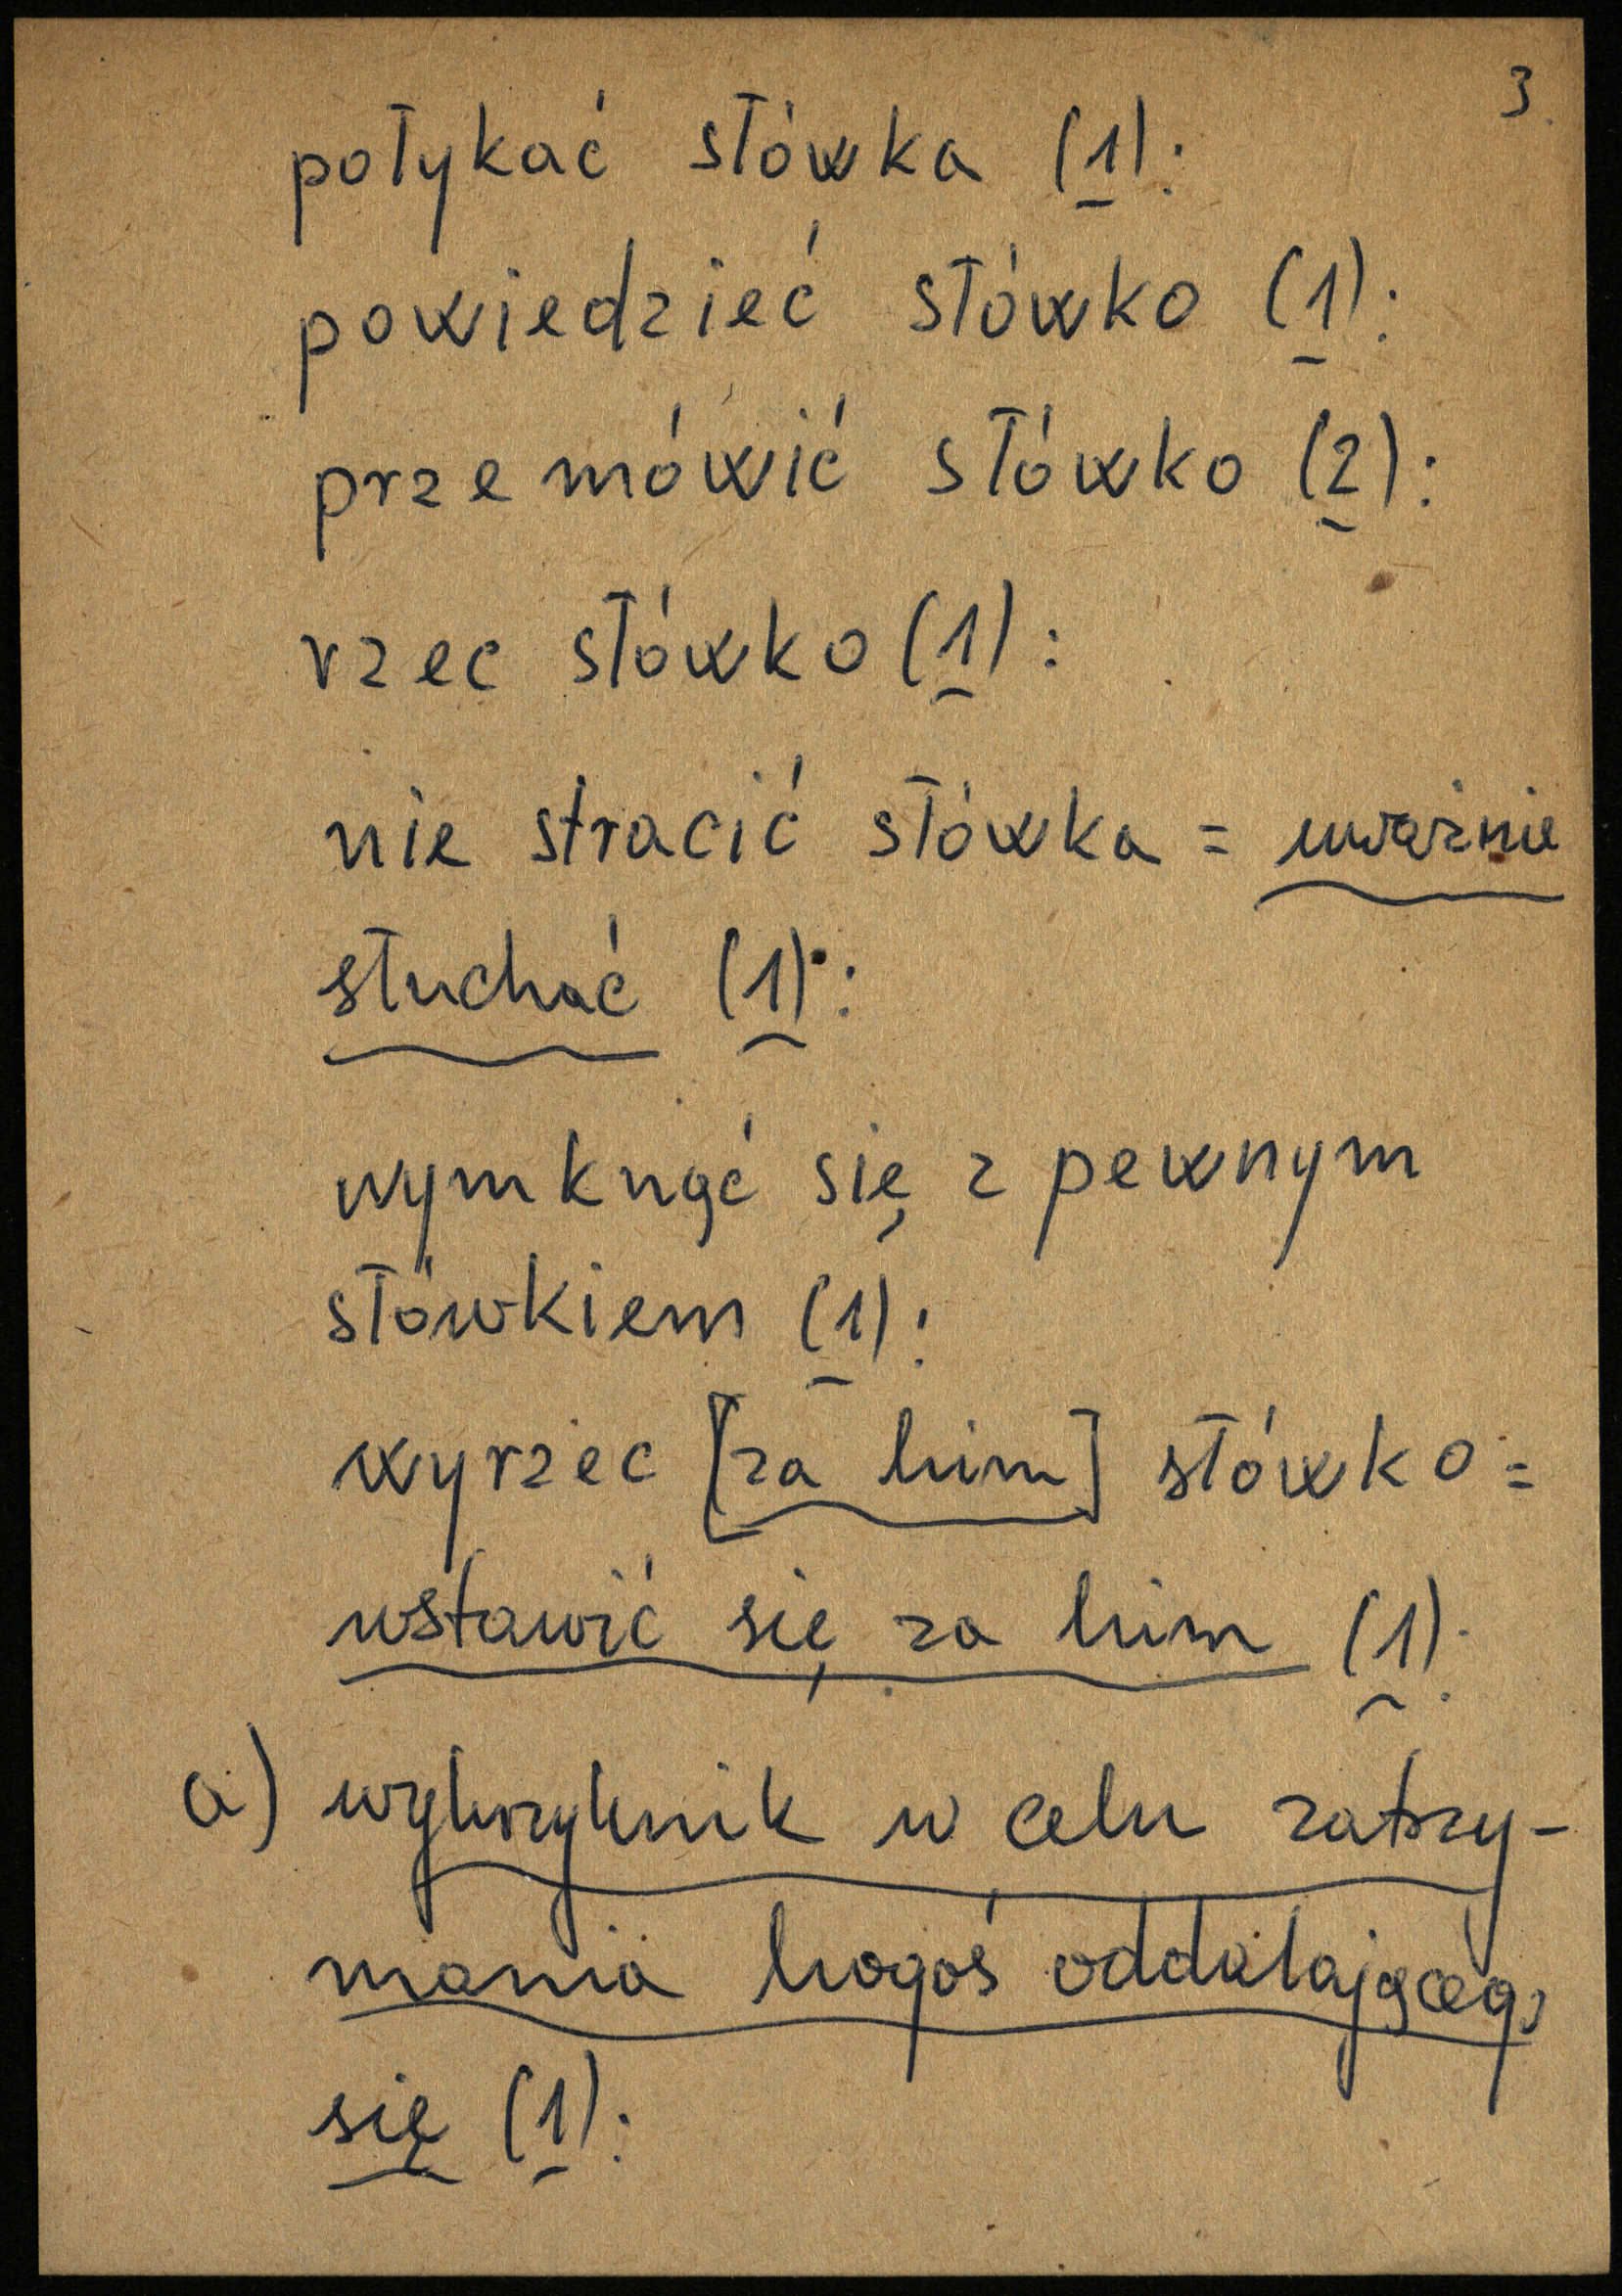 3
połykać słówka (1):
powiedzieć słówko (1):
przemówić słówko (2):
rzec słówko (1):
nie stracić słówka = uważnie
słuchać (1):
wymknąć się z pewnym
słówkiem (1):
wyrzec [za kim] słówko =
wstawić się za kim (1):
a) wykrzyknik w celu zatrzy-
mania kogoś oddalającego
się (1):